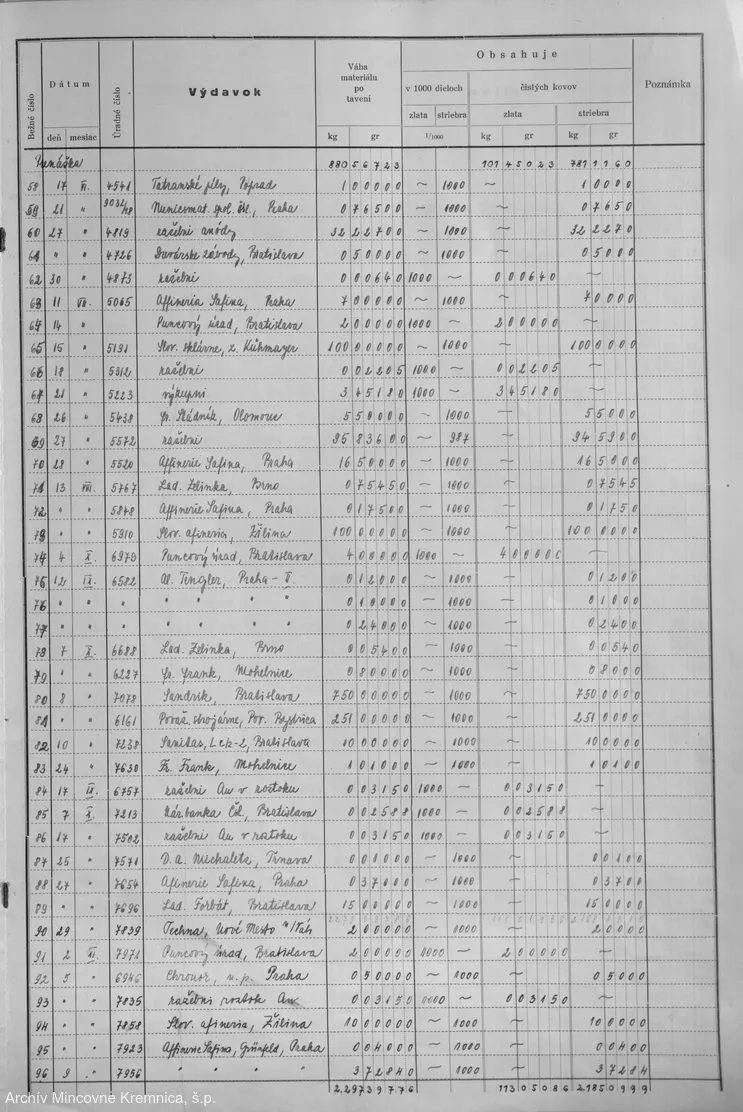 Obsahuje
Dátum
Výdavok
Váha materiálu po tavení
v 1000 dieloch
čistých kovov
Poznámka
Bežné číslo
deň mesiac
Úradné číslo
zlata striebra
zlata
striebra
kg gr 1/1000 kg gr kg gr
880 56723 101 45023 781 1160
58 17 VI. 4541 Tatranské píly, Poprad 1 00000 ~ 1000 ~ 1 0000
59 21 " 9032/48 Numizmat. spol. čsl., Praha 0 76500 ~ 1000 ~ 0 7650
60 27 " 4819 razební anódy 32 22700 ~ 1000 ~ 32 2270
61 " " 4726 závody, Bratislava 0 50000 ~ 1000 ~ 0 5000
62 30 " 4873 razební 0 00640 1000 ~ 0 00640 ~
63 11 VII. 5065 Affineria Safina, Praha 7 00000 ~ 1000 ~ 7 0000
64 14 " Puncový úrad, Bratislava 2 00000 1000 ~ 2 00000 ~
65 15 " 5191 Slov. sklárne, z. Kühmayer 100 00000 ~ 1000 ~ 100 0000
66 18 " 5312 razební 0 02205 1000 ~ 0 02205 ~
67 21 " 5223 výkupní 3 45180 1000 ~ 3 45180 ~
68 26 " 5438 Fr. Sládník, Olomouc 5 50000 ~ 1000 ~ 5 5000
69 27 " 5572 razební 95 83600 ~ 987 ~ 94 5900
70 28 " 5520 Affinerie Safina, Praha 16 50000 ~ 1000 ~ 16 5000
71 13 VIII. 5767 Lad. Zelinka, Brno 0 75450 ~ 1000 ~ 0 7545
72 " " 5848 Affinerie Safina, Praha 0 17500 ~ 1000 ~ 0 1750
73 " " 5910 Slov. afineria, Žilina 100 00000 ~ 1000 ~ 100 0000
74 4 X. 6973 Puncový úrad, Bratislava 4 00000 1000 ~ 4 00000 ~
75 12 IX. 6582 Al. Tengler, Praha - V. 0 12000 ~ 1000 ~ 0 1200
76 " " " " " " 0 10000 ~ 1000 ~ 0 1000
77 " " " " " " 0 24000 ~ 1000 ~ 0 2400
78 7 X. 6688 Lad. Zelinka, Brno 0 05400 ~ 1000 ~ 0 0540
79 " " 6227 Fr. Frank, Mohelnice 0 80000 ~ 1000 ~ 0 8000
80 8 " 7078 Sandrik, Bratislava 750 00000 ~ 1000 ~ 750 0000
81 " " 6161 Považ. strojárne, Pov. Bystrica 251 00000 ~ 1000 ~ 251 0000
82 10 " 7238 Sanitas, Bratislava 10 00000 ~ 1000 ~ 10 0000
83 24 " 7630 Fr. Frank, Mohelnice 1 01000 ~ 1000 ~ 1 0100
84 17 IX. 6757 razební Au v roztoku 0 03150 1000 ~ 0 03150 ~
85 7 X. 7213 Nár. banka Čsl., Bratislava 0 02588 1000 ~ 0 02588 ~
86 17 " 7502 razební Au v roztoku 0 03150 1000 ~ 0 03150 ~
87 25 " 7571 D. a. Michaleta, Trnava 0 01000 ~ 1000 ~ 0 0100
88 27 " 7654 Afinerie Safina, Praha 0 37000 ~ 1000 ~ 0 3700
89 " " 7696 Lad. Forbát, Bratislava 15 00000 ~ 1000 ~ 15 0000
90 29 " 7839 Techna, Nové Mesto n/Váh 2 00000 ~ 1000 ~ 2 0000
91 2 XI. 7971 Puncový úrad, Bratislava 2 00000 1000 ~ 2 00000 ~
92 5 " 6946 n. p. Praha 0 50000 ~ 1000 ~ 0 5000
93 " " 7835 razební roztok Au 0 03150 1000 ~ 0 03150 ~
94 " " 7858 Slov. afineria, Žilina 10 00000 ~ 1000 ~ 10 0000
95 " " 7923 Affinerie Safina, Grünfeld, Praha 0 04000 ~ 1000 ~ 0 0400
96 9 " 7956 " " " 3 72840 ~ 1000 ~ 3 7284
2.297 39776 113 05086 2.185 0999
Archív Mincovne Kremnica, š.p.